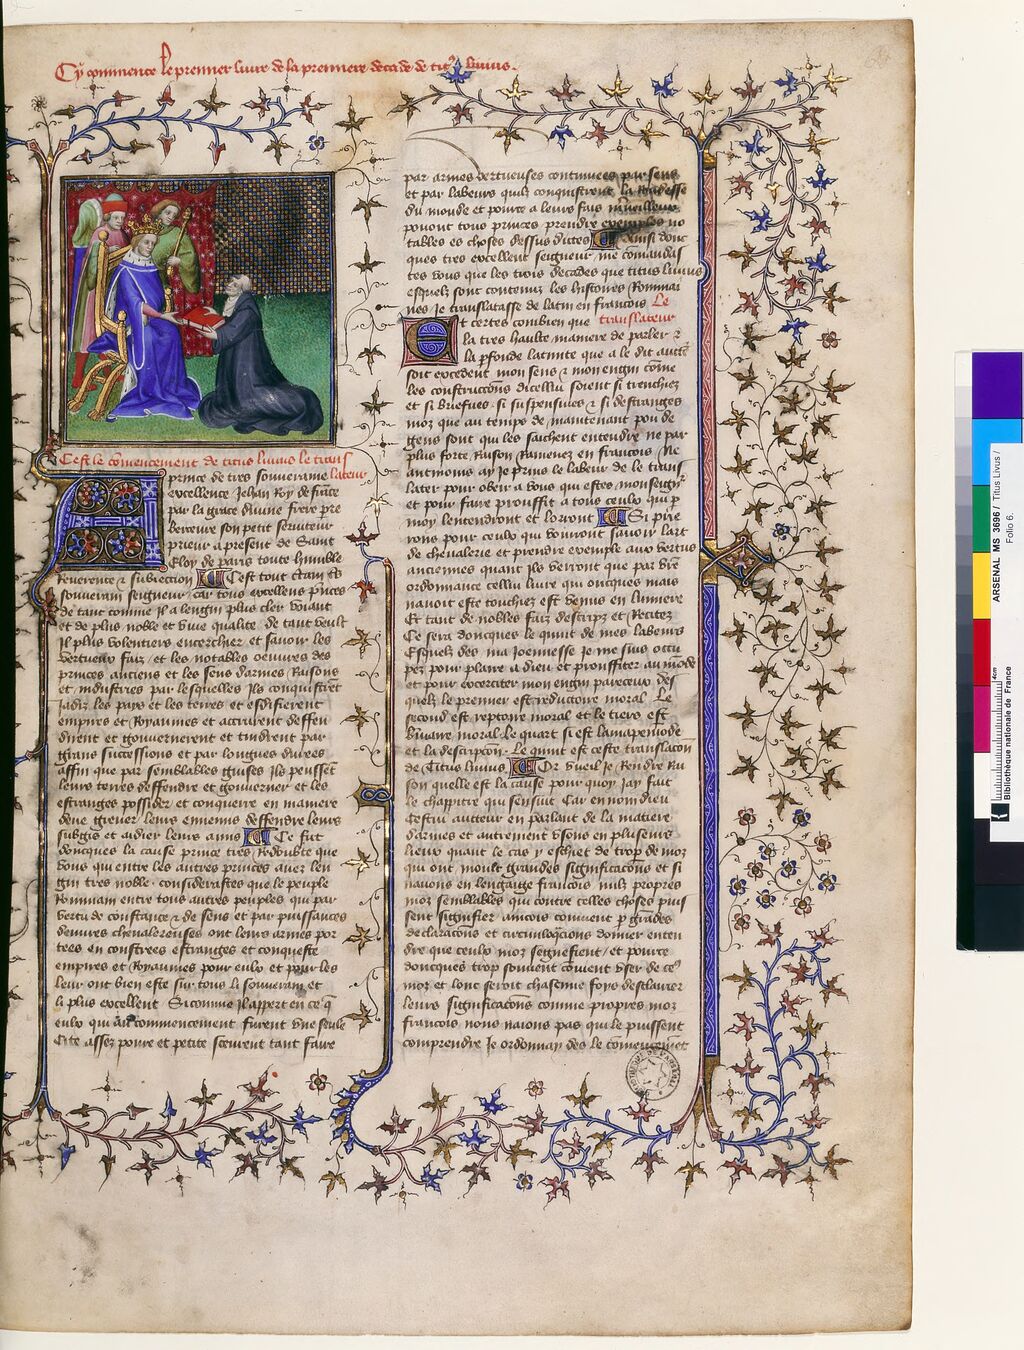 Cy commence le premier livre de la premiere decade de titus livius.
C'est le commencement de titus livius le trans
lateur
prince de tres souveraine
excellence Jehan Roy de france
par la grace divine frere pre
berceure son petit serviteur
prieur a present de Saint
Eloy de paris toute humble
Reverence & subiection C'est tout certain
souverain seigneur car tous excellens princes
de tant comme il a lengin plus cler voiant
et de plus noble et vive qualite de tant veult
il plus volentiers encercher et savoir les
vertueux faiz et les notables oeuvres des
princes anciens et les sens darmes Raisons
et industries par lesquelles Ilz conquistrent
jadis les pays et les terres et esdifierent
empires et Royaumes et accrurent deffen
dirent et gouvernerent et tindrent par
grans successions et par longues durees
affin que par semblables guises ilz peussent
leurs terres deffendre et gouverner et les
estranges possider et conquerre en maniere
deue grever leurs ennemis deffendre leurs
subgés et aidier leurs amis Ce fut
doncques la cause prince tres Redoubté que
vous qui entre les autres princes avez len
gin tres noble considerastes que le peuple
Rommain entre tous autres peuples qui par
vertu de constance & de sens et par puissances
deuvres chevalereuses ont leurs armes por
tees en contrees estranges et conqueste
empires et Royaumes pour eulx et pour les
leur ont bien este sur tous li souverain et
li plus excellent Si comme il appert en ce q
eulx qui au commencement furent dune seule
cite assez povre et petite sceurent tant faire
par armes vertueuses continuees par sens
et par labeurs quilz conquistrent la
du monde et pource a leurs fais merveilleux
povent tous princes prendre exemples no
tables es choses dessus dictes Ainsi donc
ques tres excellent seigneur me comandas
tes vous que les trois decades que titus livius
esquelz sont contenuz les histoires Rommai
nes je translatasse de latin en francois Le
translateur
Et certes combien que
la tres haulte maniere de parler &
la pfonde latinite que a le dit autr
soit excedent mon sens & mon engin come
les constructions dicellui soient si trenchiez
et si briefves si suspensives & si destranges
moz que au temps de maintenant pou de
gens sont qui les saichent entendre ne par
plus forte Raison Ramener en francois Ne
antmoins ay je prins le labeur de le trans
later pour obeir a vous qui estes monseignr
et pour faire prouffit a tous ceulx qui p
moy lentendront et lorront Si pire
vons pour ceulx qui vouront savoir lart
de chevalerie et prendre exemple aux vertus
anciennes quant ilz verront que par vre
ordonnance cellui livre qui oncques mais
navoit este touchiez est venus en lumiere
Et tant de nobles faiz descripz et Recitez
Ce sera doncques le quint de mes labeurs
Esquelz des ma joennesse je me suis occu
pez pour plaire a dieu et prouffiter au mode
et pour excerciter mon engin pareceux des
quelz le premier est reductoire moral Le
second est reptoire moral et le tiers est
breviaire moral Le quart si est la mapemode
et la descripcon Le quint est ceste translacon
de Titus livius Or vueil je Rendre Rai
son quelle est la cause pour quoy jay fait
le chapitre qui sensuit Car en nom dieu
Cestui aucteur en parlant de la matiere
darmes et autrement usons en plusieurs
lieux quant le cas y eschiet de trop de moz
qui ont moult grandes significacons et si
navons en lengaige francois nulz propres
moz semblables qui toutes celles choses puis
sent signifier aincois convient p grades
declaracons et circunloqucions donner enten
dre que ceulx moz segnefient et pource
doncques trop souvent covient user de ces
moz et lonc seroit chascune foys desclairer
leurs significacons comme propres moz
francois nous naions pas qui le puissent
comprendre Je ordonnay des le comencemet
ARSENAL MS 3696 / Titus Livus /
Folio 6.
4cm
Bibliothèque nationale de France